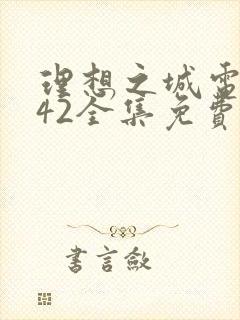 理想之城電
42全集免費
書言斂